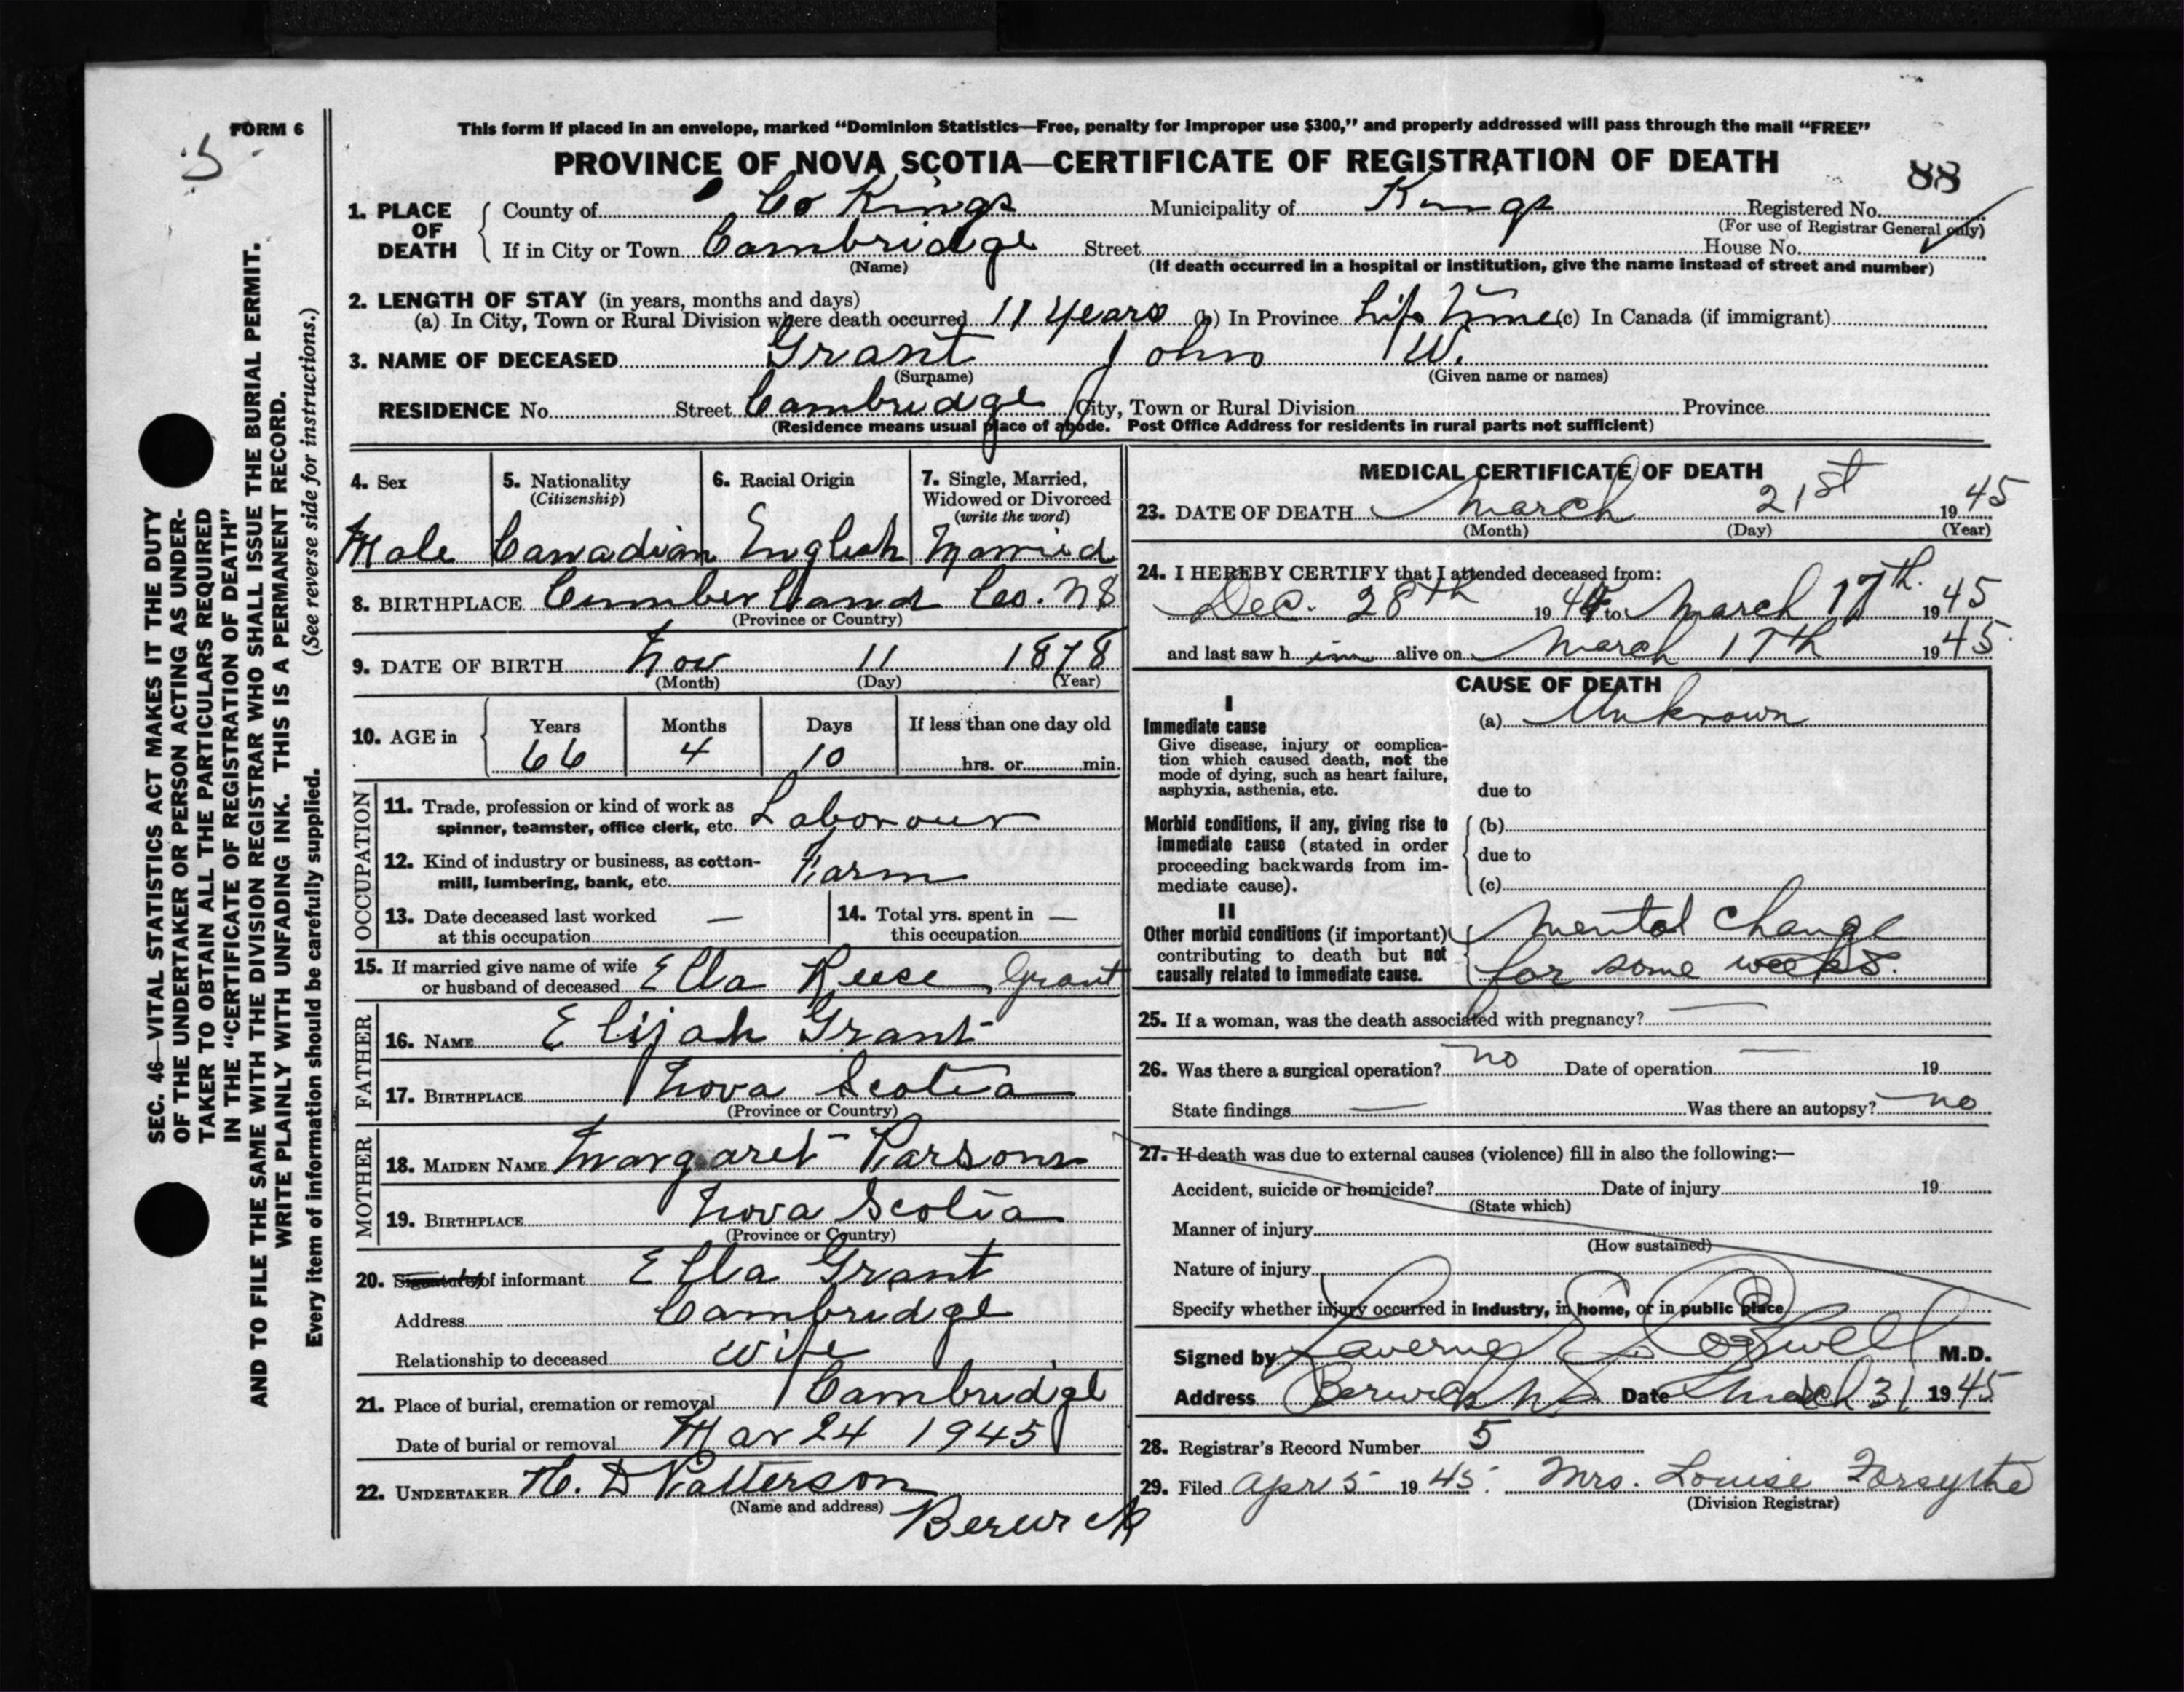 FORM 6
5
This form if placed in an envelope, marked “Dominion Statistics—Free, penalty for improper use $300,” and properly addressed will pass through the mail “FREE”
PROVINCE OF NOVA SCOTIA—CERTIFICATE OF REGISTRATION OF DEATH
88
1. PLACE OF DEATH
County of Co Kings Municipality of Kings Registered No.
(For use of Registrar General only)
If in City or Town Cambridge Street House No.
(Name) (If death occurred in a hospital or institution, give the name instead of street and number)
2. LENGTH OF STAY (in years, months and days)
(a) In City, Town or Rural Division where death occurred 11 years (b) In Province Life Time (c) In Canada (if immigrant)
3. NAME OF DECEASED Grant John W.
(Surname) (Given name or names)
RESIDENCE No. Street Cambridge City, Town or Rural Division Province
(Residence means usual place of abode. Post Office Address for residents in rural parts not sufficient)
4. Sex 5. Nationality 6. Racial Origin 7. Single, Married,
(Citizenship) Widowed or Divorced
(write the word)
Male Canadian English Married
8. BIRTHPLACE Cumberland Co. NS
(Province or Country)
9. DATE OF BIRTH Nov 11 1878
(Month) (Day) (Year)
10. AGE in Years Months Days If less than one day old
66 4 10 hrs. or min.
OCCUPATION
11. Trade, profession or kind of work as
spinner, teamster, office clerk, etc. Labonour
12. Kind of industry or business, as cotton-
mill, lumbering, bank, etc. Farm
13. Date deceased last worked —
at this occupation
14. Total yrs. spent in —
this occupation
15. If married give name of wife
or husband of deceased Ella Reese Grant
FATHER
16. NAME Elijah Grant
17. BIRTHPLACE Nova Scotia
(Province or Country)
MOTHER
18. MAIDEN NAME Margaret Parsons
19. BIRTHPLACE Nova Scotia
(Province or Country)
20. Signature of informant Ella Grant
Address Cambridge
Relationship to deceased wife
21. Place of burial, cremation or removal Cambridge
Date of burial or removal Mar 24 1945
22. UNDERTAKER H. D Patterson
(Name and address) Berwick
MEDICAL CERTIFICATE OF DEATH
23. DATE OF DEATH March 21st 1945
(Month) (Day) (Year)
24. I HEREBY CERTIFY that I attended deceased from:
Dec. 28th 1944 to March 17th. 1945
and last saw h im alive on March 17th 1945.
CAUSE OF DEATH
I
Immediate cause (a) Unknown
Give disease, injury or complica-
tion which caused death, not the
mode of dying, such as heart failure,
asphyxia, asthenia, etc. due to
Morbid conditions, if any, giving rise to (b)
immediate cause (stated in order
proceeding backwards from im- due to
mediate cause). (c)
II
Other morbid conditions (if important) Mental change
contributing to death but not
causally related to immediate cause. for some weeks.
25. If a woman, was the death associated with pregnancy? —
26. Was there a surgical operation? no Date of operation — 19
State findings — Was there an autopsy? no
27. If death was due to external causes (violence) fill in also the following:—
Accident, suicide or homicide? Date of injury 19
(State which)
Manner of injury
(How sustained)
Nature of injury
Specify whether injury occurred in industry, in home, or in public place
Signed by Laverne E. Cogswell M.D.
Address Berwick NS Date March 31 1945
28. Registrar's Record Number 5
29. Filed Apr 5 1945. Mrs. Louise Forsythe
(Division Registrar)
SEC. 46—VITAL STATISTICS ACT MAKES IT THE DUTY
OF THE UNDERTAKER OR PERSON ACTING AS UNDER-
TAKER TO OBTAIN ALL THE PARTICULARS REQUIRED
IN THE “CERTIFICATE OF REGISTRATION OF DEATH”
AND TO FILE THE SAME WITH THE DIVISION REGISTRAR WHO SHALL ISSUE THE BURIAL PERMIT.
WRITE PLAINLY WITH UNFADING INK. THIS IS A PERMANENT RECORD.
Every item of information should be carefully supplied. (See reverse side for instructions.)